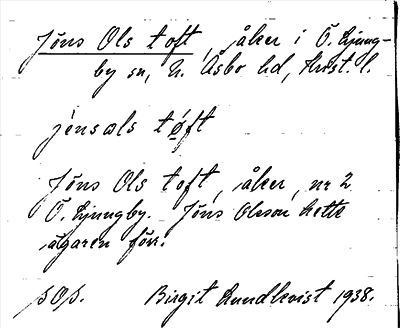 Jöns Ols toft, åker i Ö. Ljung-
by sn, N. Åsbo hd, Krist. l.
jènsals tøft
Jöns Ols toft, åker, nr 2
Ö. Ljungby. Jöns Olsson hette
ägaren förr.
Birgit Lundkvist 1938.